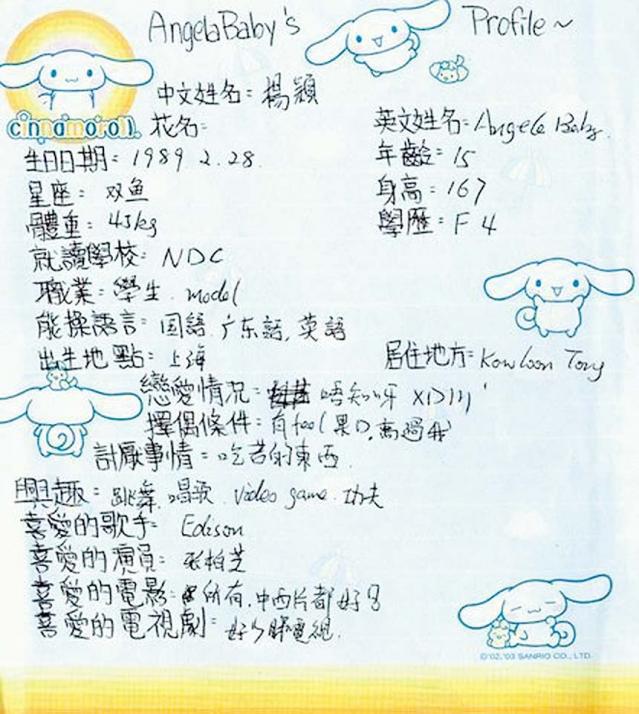 AngelaBaby's Profile~
中文姓名: 楊穎
cinnamoroll 花名: 英文姓名: Angela Baby.
生日日期: 1989.2.28. 年齡: 15
星座: 双鱼 身高: 167
體重: 45kg 學歷: F 4
就讀學校: NDC
職業: 學生. model
能操語言: 国語. 广东話. 英語
出生地點: 上海 居住地方: Kowloon Tong
戀愛情況: 唔知呀 XD
擇偶條件: 有feel 果D, 高過我
討厭事情: 吃苦的東西.
興趣: 跳舞. 唱歌. video game. 功夫
喜愛的歌手: Edison
喜愛的演員: 张柏芝
喜愛的電影: 所有. 中西片都好睇
喜愛的電視劇: 好少睇電視.
©'02,'03 SANRIO CO., LTD.